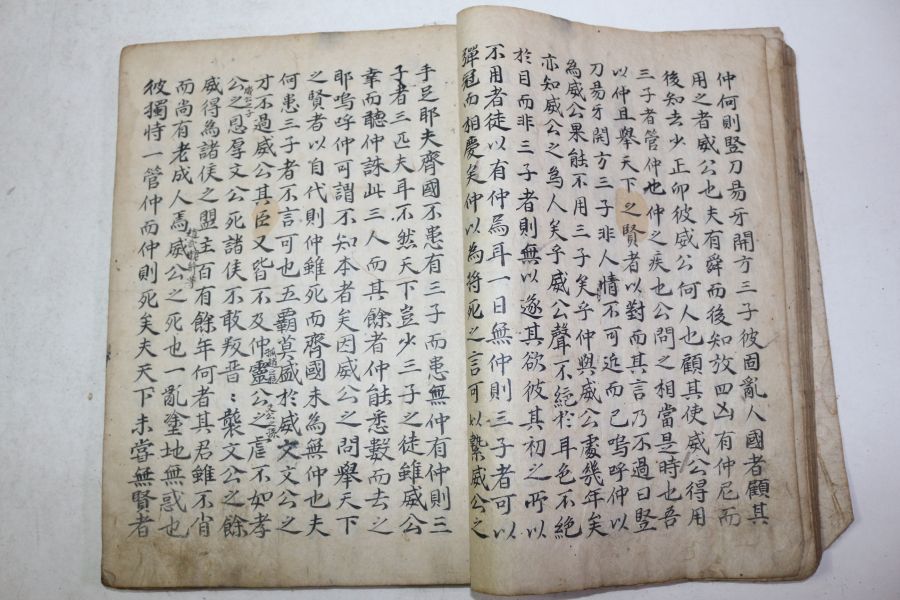 仲何則竪刀易牙開方三子彼固亂人國者顧其
用之者威公也夫有舜而後知放四凶有仲尼而
後知去少正卯彼威公何人也顧其使威公得用
三子者管仲也仲之疾也公問之相當是時也吾
以仲且擧天下之賢者以對而其言乃不過曰竪
刀易牙開方三子非人情不可近而已嗚呼仲以
為威公果能不用三子矣乎仲與威公處幾年矣
亦知威公之為人矣乎威公聲不絕於耳色不絕
於目而非三子者則無以遂其欲彼其初之所以
不用者徒以有仲焉耳一日無仲則三子者可以
彈冠而相慶矣仲以為將死之言可以縶威公之
手足耶夫齊國不患有三子而患無仲有仲則三
子者三匹夫耳不然天下豈少三子之徒雖威公
幸而聽仲誅此三人而其餘者仲能悉數而去之
耶嗚呼仲可謂不知本者矣因威公之問擧天下
之賢者以自代則仲雖死而齊國未為無仲也夫
何患三子者不言可也五霸莫盛於威文文公之
才不過威公其臣又皆不及仲靈公之虐不如孝
公之恩厚文公死諸侯不敢叛晋：襲文公之餘
威得為諸侯之盟主百有餘年何者其君雖不肖
而尚有老成人焉威公之死也一亂塗地無惑也
彼獨恃一管仲而仲則死矣夫天下未嘗無賢者